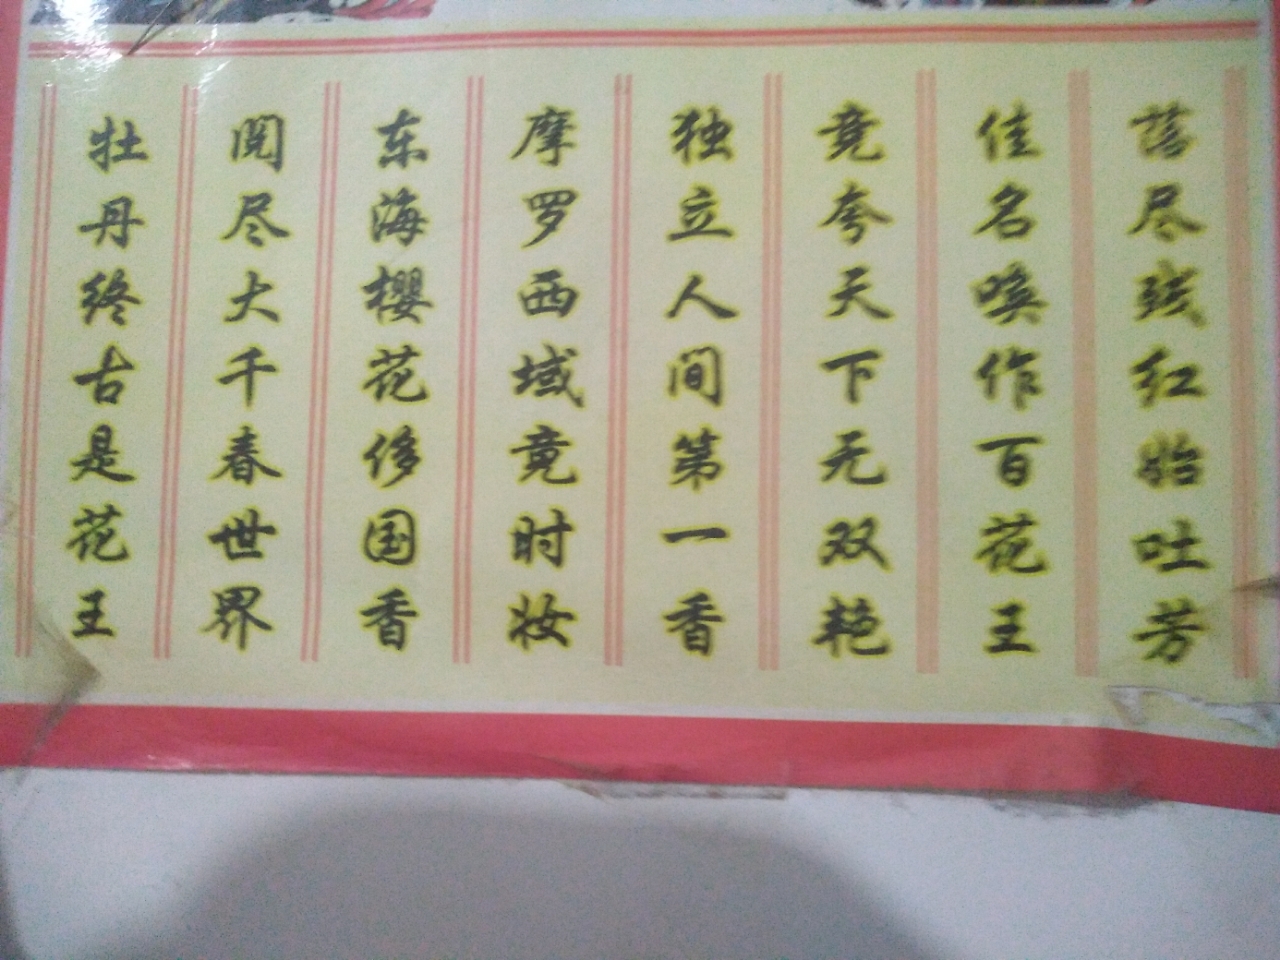 落尽残红始吐芳
佳名唤作百花王
竟夸天下无双艳
独立人间第一香
摩罗西域竟时妆
东海樱花侈国香
阅尽大千春世界
牡丹终古是花王